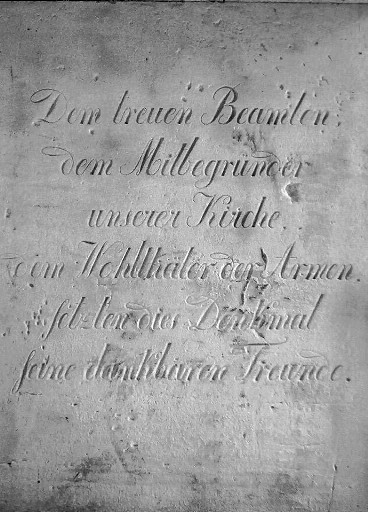 Dem treuen Beamten,
dem Mitbegründer
unserer Kirche,
dem Wohlthäter der Armen.
setzten dies Denkmal
seine dankbaren Freunde.